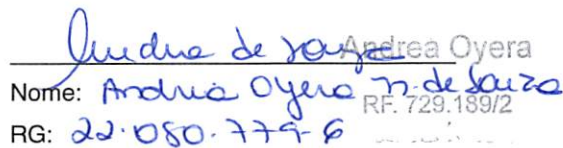 Andrea de Souza Andrea Oyera
Nome: Andrea Oyera N. de Souza
RF. 729.189/2
RG: 22.080.779-6